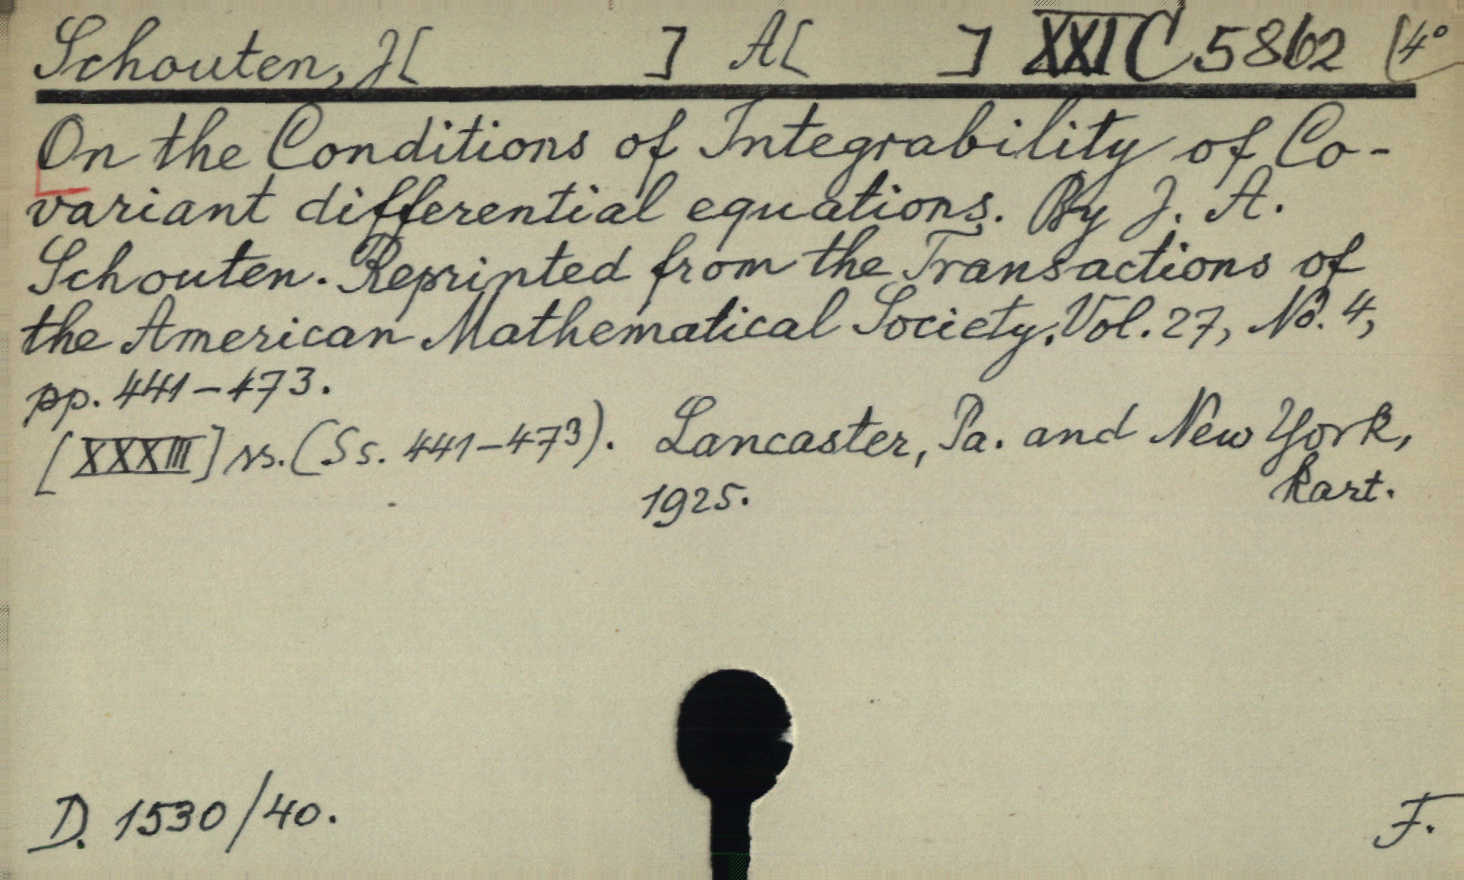 Schouten, J[ ] A[ ] XXI C 5862 (4°
On the Conditions of Integrability of Co-
variant differential equations. By J. A.
Schouten. Reprinted from the Transactions of
the American Mathematical Society. Vol. 27, No. 4,
pp. 441-473.
[XXXIII] ss. (Ss. 441-473). Lancaster, Pa. and New York,
1925. kart.
D. 1530/40. F.